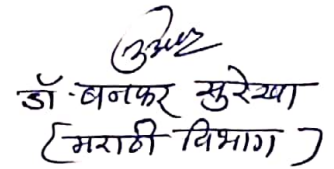 डॉ. बनकर सुरेखा
(मराठी विभाग)